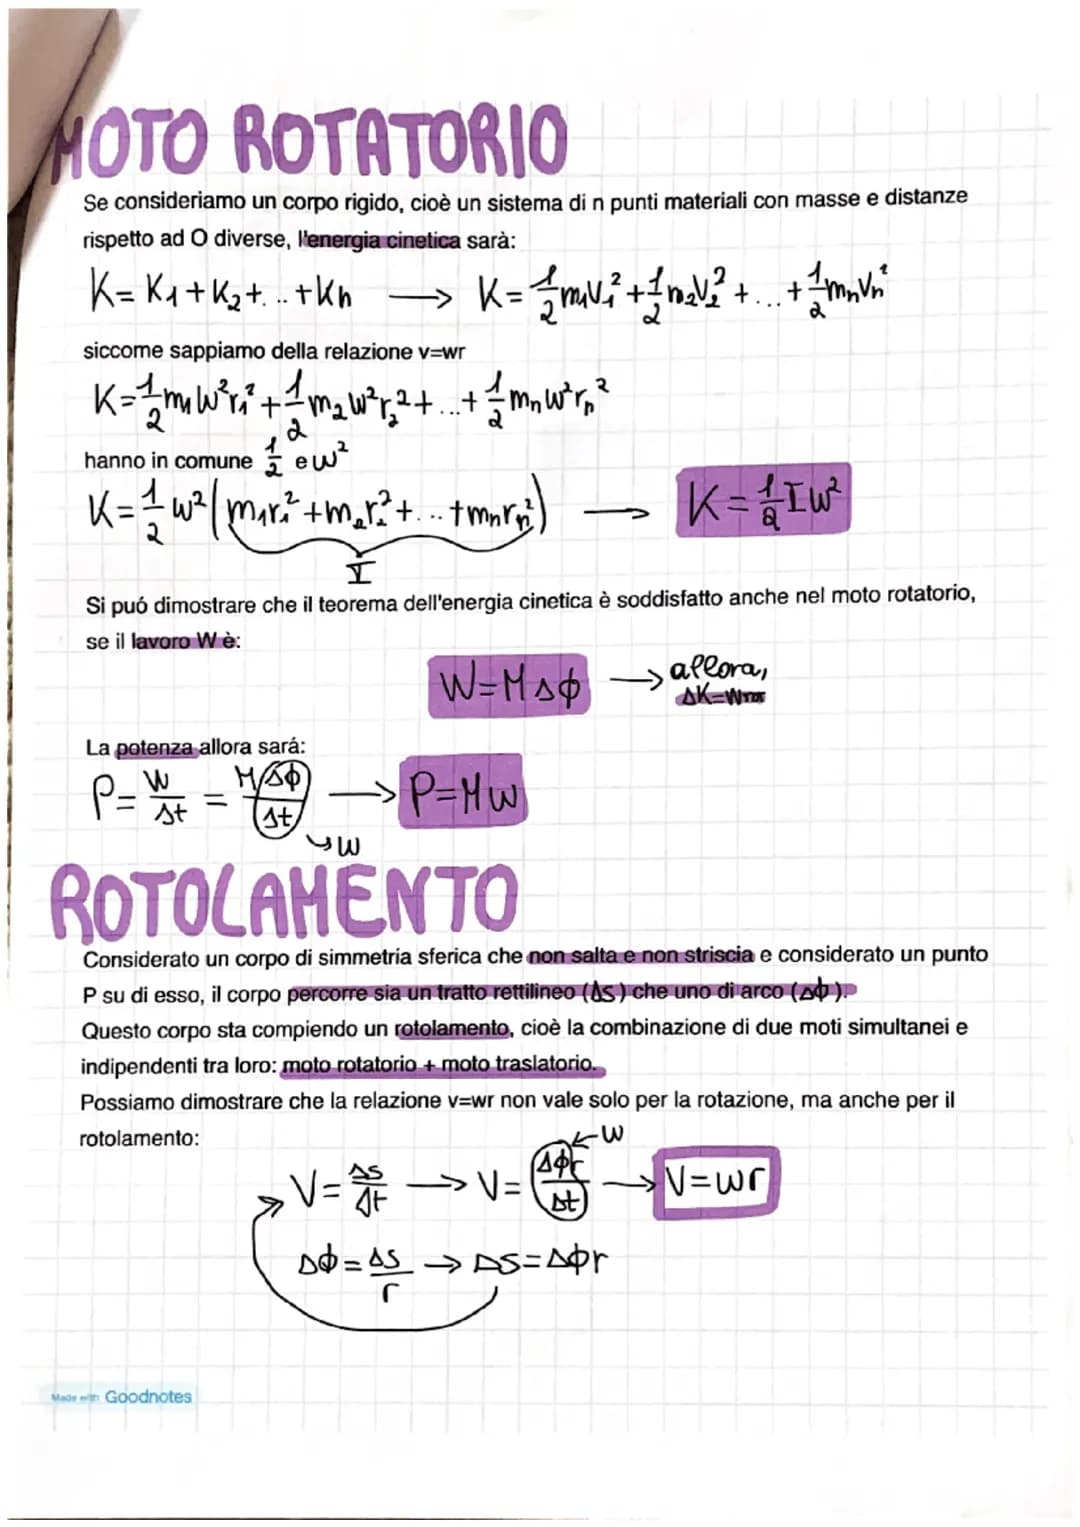 MOTO ROTATORIO
Se consideriamo un corpo rigido, cioè un sistema di n punti materiali con masse e distanze
rispetto ad O diverse, l'energia cinetica sarà:
K=K₁+K₂+...+Kn → K=½m₁V₁²+½m₂V₂²+...+½mnVn²
siccome sappiamo della relazione v=wr
K=½m₁w²r₁²+½m₂w²r₂²+...+½mnw²rn²
hanno in comune ½ e w²
K=½w²(m₁r₁²+m₂r₂²+...+mnrn²) → K=½Iw²
I
Si puó dimostrare che il teorema dell'energia cinetica è soddisfatto anche nel moto rotatorio,
se il lavoro W è:
W=MΔϕ → allora,
ΔK=Wтот
La potenza allora sará:
P=W/Δt = MΔϕ/Δt → P=Mw
w
ROTOLAMENTO
Considerato un corpo di simmetria sferica che non salta e non striscia e considerato un punto
P su di esso, il corpo percorre sia un tratto rettilineo (Δs) che uno di arco (Δϕ).
Questo corpo sta compiendo un rotolamento, cioè la combinazione di due moti simultanei e
indipendenti tra loro: moto rotatorio + moto traslatorio.
Possiamo dimostrare che la relazione v=wr non vale solo per la rotazione, ma anche per il
rotolamento:
←w
V=Δs/Δt → V=Δϕr/Δt → V=wr
Δϕ=Δs/r → Δs=Δϕr
Made with Goodnotes